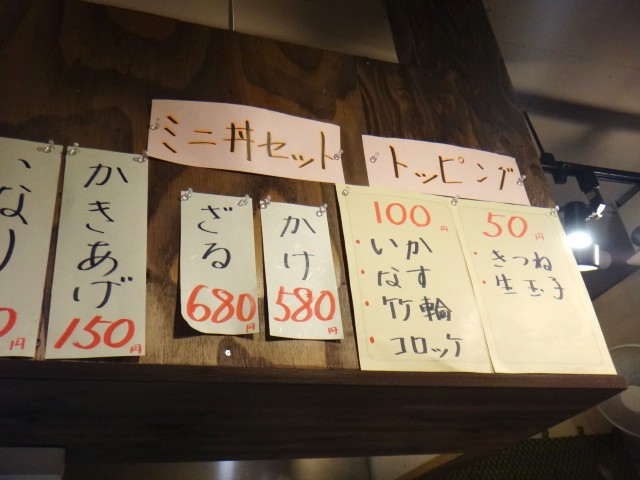 ミニ丼セット
トッピング
かきあげ
150円
ざる
680円
かけ
580円
100円
・いか
・なす
・竹輪
・コロッケ
50円
・きつね
・生玉子